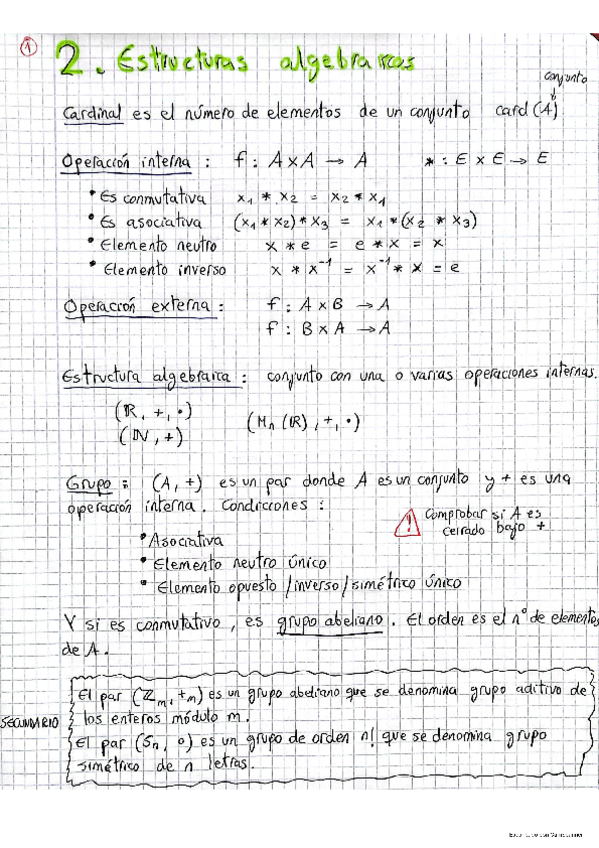 1
2. Estructuras algebraicas
conjunto
Cardinal es el número de elementos de un conjunto card (A)
Operación interna : f : A x A → A * : E x E → E
• Es conmutativa x₁ * x₂ = x₂ * x₁
• Es asociativa (x₁ * x₂) * x₃ = x₁ * (x₂ * x₃)
• Elemento neutro x * e = e * x = x
• Elemento inverso x * x⁻¹ = x⁻¹ * x = e
Operación externa : f : A x B → A
f : B x A → A
Estructura algebraica : conjunto con una o varias operaciones internas.
(ℝ, +, •) (Mn (ℝ), +, •)
(ℕ, +)
Grupo : (A, +) es un par donde A es un conjunto y + es una
operación interna. Condiciones :
⚠ Comprobar si A es
cerrado bajo +
• Asociativa
• Elemento neutro único
• Elemento opuesto / inverso / simétrico único
Y si es conmutativo, es grupo abeliano. El orden es el nº de elementos
de A.
SECUNDARIO
El par (ℤm, +m) es un grupo abeliano que se denomina grupo aditivo de
los enteros módulo m.
El par (Sn, ∘) es un grupo de orden n! que se denomina grupo
simétrico de n letras.